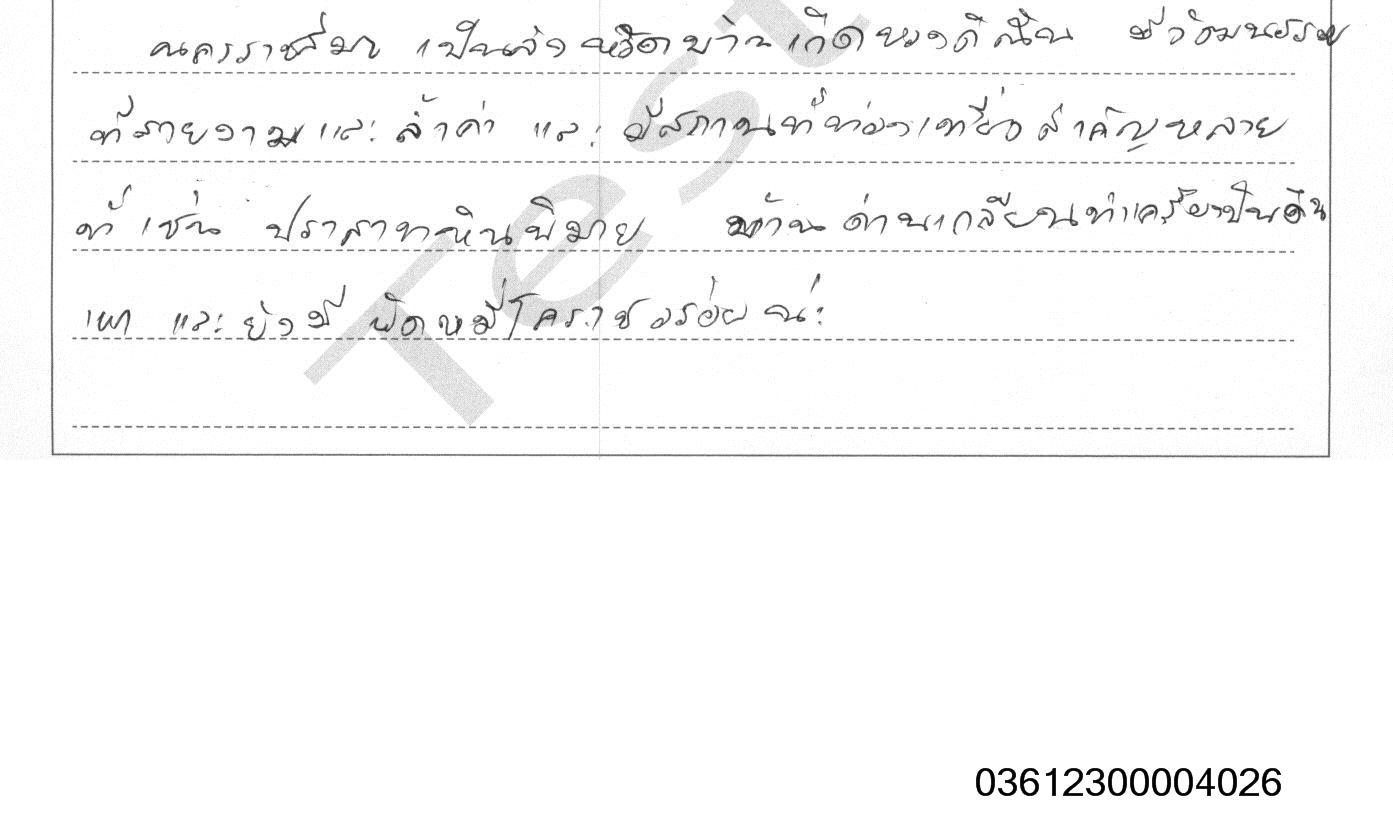 นครราชสีมา เป็นจังหวัดบ้านเกิดของดิฉัน มีวัฒนธรรม
ที่สวยงามและล้ำค่า และมีสถานที่ท่องเที่ยวสำคัญหลาย
ที่ เช่น ปราสาทหินพิมาย บ้านด่านเกวียนทำเครื่องปั้นดิน
เผา และยังมี ผัดหมี่โคราชอร่อยค่ะ
Test
03612300004026